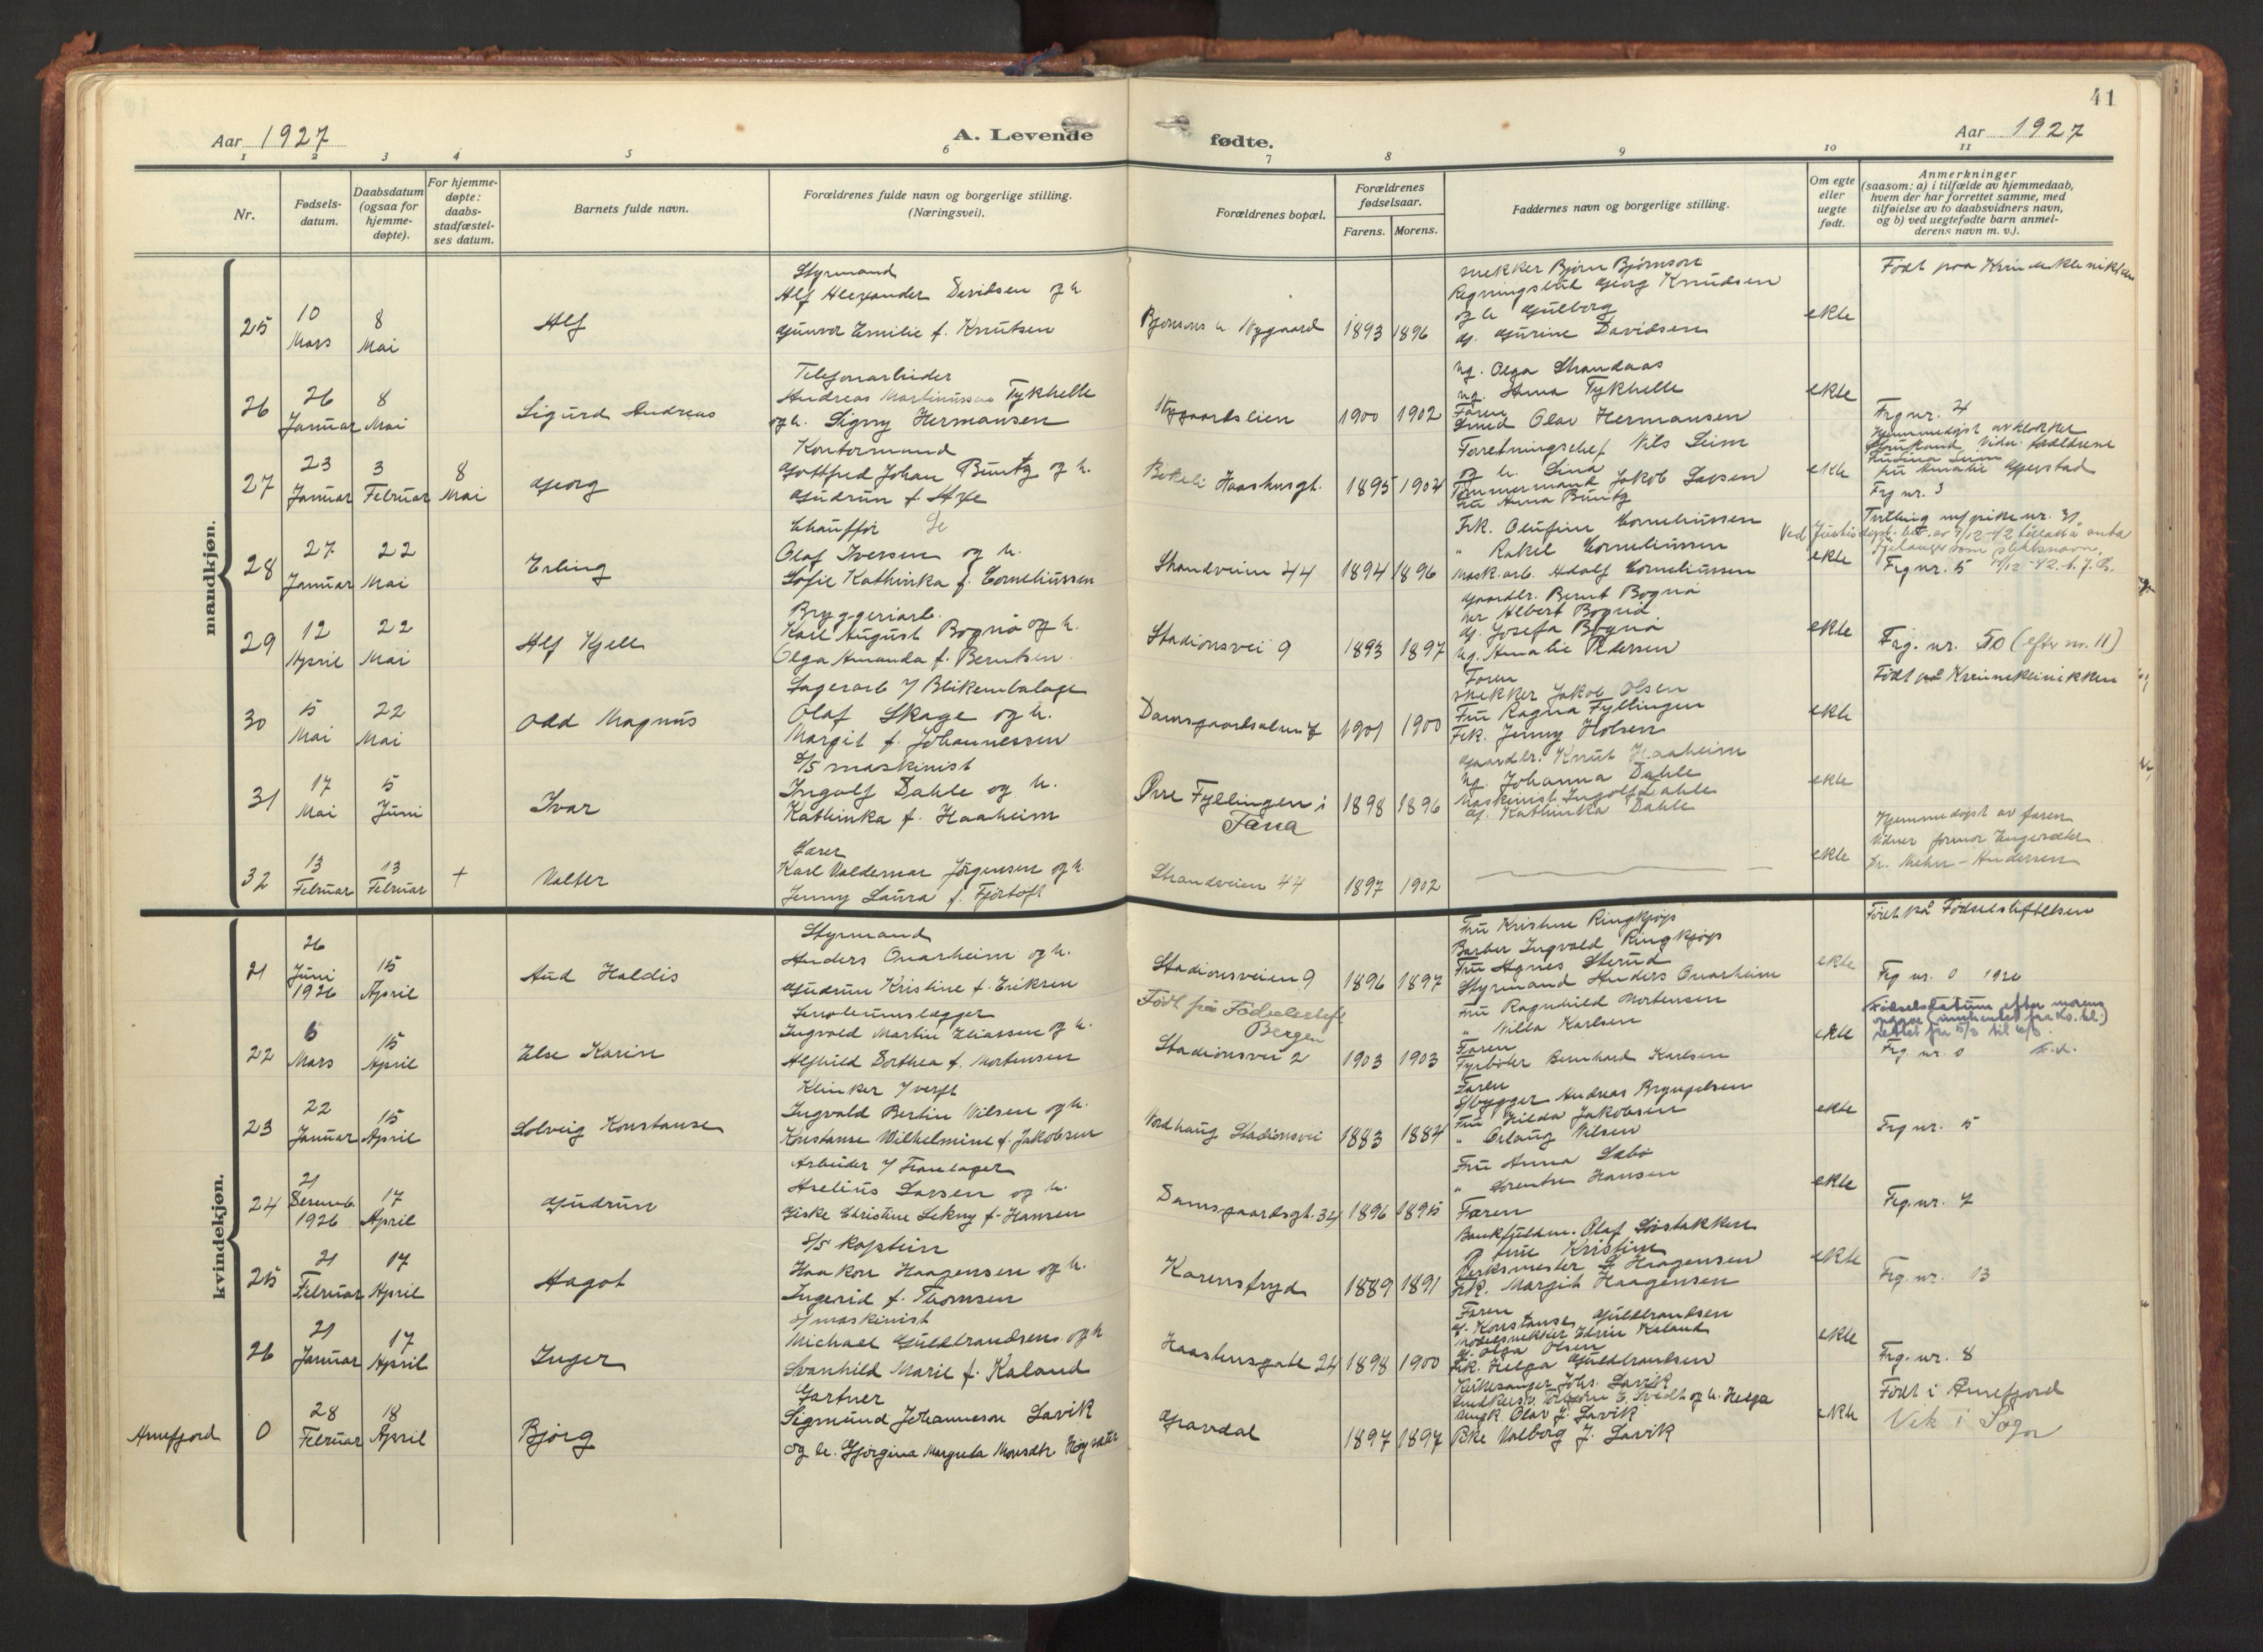 41
Aar 1927
A. Levende
fødte.
Aar 1927
1 2 3 4 5 6 7 8 9 10 11
Nr.
Fødsels-
datum.
Daabsdatum
(ogsaa for
hjemme-
døpte).
For hjemme-
døpte:
daabs-
stadfæstel-
ses datum.
Barnets fulde navn.
Forældrenes fulde navn og borgerlige stilling.
(Næringsvei).
Forældrenes bopæl.
Forældrenes
fødselsaar.
Farens. Morens.
Faddernes navn og borgerlige stilling.
Om egte
eller
uegte
født.
Anmerkninger
(saasom: a) i tilfælde av hjemmedaab,
hvem der har forrettet samme, med
tilføielse av to daabsvidners navn,
og b) ved uegtefødte barn anmel-
derens navn m. v.).
mandkjøn.
25
10
Mars
8
Mai
Alf
Styrmand
Alf Alexander Davidsen og h.
Gunvor Emilie f. Knutsen
Nygaard
1893 1896
snekker Bjørn Bjørnson
Georg Knudsen
og h. Gulborg
Gj. Gurine Davidsen
ekte
Født paa Kvindeklinikken
26
26
Januar
8
Mai
Sigurd Andreas
Telefonarbeider
Andreas Martinussen Tykhelle
og h. Signy Hermansen
Nygaardslien
1900 1902
Ug. Olga Strandaas
Ug. Anna Tykhelle
Faren
Smed Olav Hermansen
ekte
Frg nr. 4
27
23
Januar
3
Februar
8
Mai
Georg
Kontormand
Gottfred Johan Buntz og h.
Gudrun f.
Haashusgt.
1895 1904
Forretningschef Nils Seim
og h. Lina
Tømmermand Jakob Larsen
Fru Anna Buntz
ekte
Hjemmedøpt av klokker
fru Amalie Gjerstad
Frg nr. 3
28
27
Januar
22
Mai
Erling
Chauffør
Olaf Iversen og h.
Sofie Kathinka f. Corneliussen
Strandveien 44
1894 1896
Frk. Olufine Corneliussen
" Rakel Corneliussen
Mask. arb. Adolf Corneliussen
ekte
Tvilling m/ pike nr. 31
som slektsnavn.
Frg nr. 5
29
12
April
22
Mai
Alf Kjell
Bryggeriarb.
Karl August Bognø og h.
Olga Amanda f. Berntsen
Stadionsvei 9
1893 1897
Gaardbr. Bernt Bognø
Albert Bognø
Gj. Josefa Bognø
Ug. Amalie Pedersen
ekte
Frg. nr. 50 (efter nr. 11)
30
5
Mai
22
Mai
Odd Magnus
Lagerarb. v/ Blikemballage
Olaf Skage og h.
Margit f. Johannessen
1901 1900
Faren
snekker Jakob Olsen
Fru Ragna Fyllingen
Frk. Jenny Holsen
ekte
Født på Kvinneklinikken
31
17
Mai
5
Juni
Ivar
S/S maskinist
Ingolf Dahle og h.
Kathinka f. Haaheim
Øvre Fyllingen i
Fana
1898 1896
Gaardbr. Knut Haaheim
Ug. Johanna Dahle
Maskinist Ingolf Dahle
Gj. Kathinka Dahle
ekte
32
13
Februar
13
Februar
+
Valter
Lærer
Karl Valdemar Jørgensen og h.
Jenny Laura f. Fjørtoft
Strandveien 44
1897 1902
ekte
Hjemmedøpt av faren
kvindekjøn.
21
26
Juni
1926
15
April
Aud Haldis
Styrmand
Anders Onarheim og h.
Gudrun Kristine f. Eriksen
Stadionsveien 9
1896 1897
Fru Kristine Ringkjøp
Barber Ingvald Ringkjøp
Fru Agnes Sterud
Styrmand Anders Onarheim
ekte
Født på Fødselsstiftelsen
Frg nr. 0 1926
22
6
Mars
15
April
Else Karin
Linoleumslægger
Ingvald Martin Eliassen og h.
Alfhild Dorthea f. Mortensen
Født på Fødselsstift
Bergen
Stadionsvei 2
1903 1903
Fru Ragnhild Mortensen
" Hilda Karlsen
Faren
Fyrbøter Bernhard Karlsen
ekte
Fødselsdatum efter morens
rettet fra 5/3 til 6/3.
Frg. nr. 0
23
22
Januar
15
April
Solveig Konstanse
Klinker v/ verft
Ingvald Bertin Nilsen og h.
Konstanse Wilhelmine f. Jakobsen
Nordhaug Stadionsvei
1883 1884
Faren
S/bygger Andreas Bryngelsen
Fru Hilda Jakobsen
" Oslaug Nilsen
ekte
Frg nr. 5
24
21
Desemb.
1926
17
April
Gudrun
Arbeider v/ Tranlager
Aselius Larsen og h.
Giske Christine Lekny f. Hansen
Damsgaardsgt. 34
1896 1895
Fru Anna Sæbø
" Lorentse Hansen
Faren
ekte
Frg. nr. 7
25
21
Februar
17
April
Hagot
S/S kaptein
Haakon Haagensen og h.
Ingerid f. Thomsen
Karensfryd
1889 1891
Bankfuldm. Olaf Løstakken
og frue Kristine
Verksmester Haagensen
Frk. Margit Haagensen
ekte
Frg. nr. 13
26
21
Januar
17
April
Inger
S/ maskinist
Michael Guldbrandsen og h
Svanhild Marie f. Kaland
Haashusgate 24
1898 1900
Faren
Gj. Konstanse Guldbrandsen
Modelsnekker Kaland
Gj. Olga Olsen
Frk. Helga Guldbrandsen
ekte
Frg. nr. 8
Arnefjord
0
28
Februar
18
April
Bjørg
Gartner
Sigmund Johanneson Lavik
og h. Gjørgina Margreta Monsdtr.
Gravdal
1897 1897
Kirkesanger Johs. Lavik
Tvedt og h. Helga
Ungk. Olav J. Lavik
Pike Valborg J. Lavik
ekte
Født i Arnefjord
Vik i Sogn